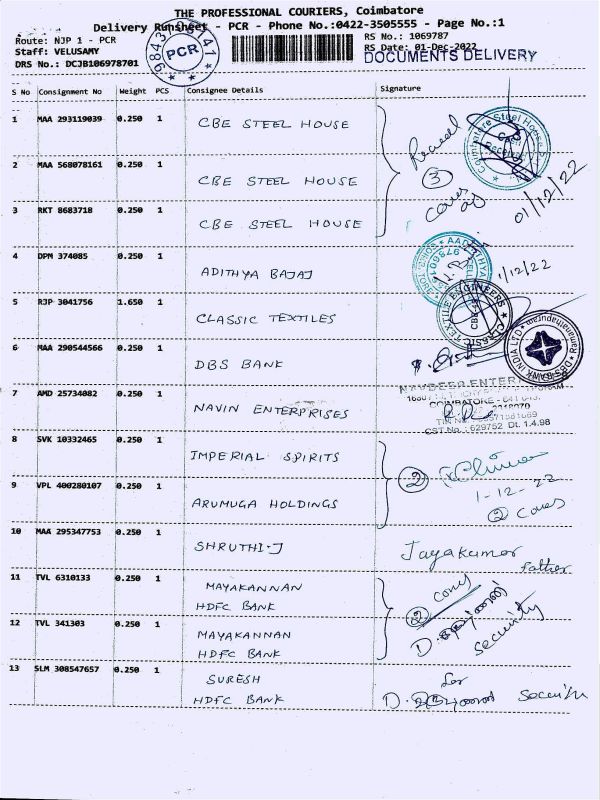 THE PROFESSIONAL COURIERS, Coimbatore
Delivery Runsheet - PCR - Phone No.:0422-3505555 - Page No.:1
Route: NJP 1 - PCR
RS No.: 1069787
Staff: VELUSAMY
RS Date: 01-Dec-2022
DRS No.: DCJB106978701
DOCUMENTS DELIVERY
PCR
S No Consignment No Weight PCS Consignee Details Signature
1 MAA 293119039 0.250 1 CBE STEEL HOUSE
2 MAA 568078161 0.250 1 CBE STEEL HOUSE
3 RKT 8683718 0.250 1 CBE STEEL HOUSE
3
01/12/22
4 DPM 374085 0.250 1 ADITHYA BAJAJ
1/12/22
5 RJP 3041756 1.650 1 CLASSIC TEXTILES
6 MAA 290544566 0.250 1 DBS BANK
7 AMD 25734082 0.250 1 NAVIN ENTERPRISES
COIMBATORE
CST No.: 629752 Dt. 1.4.98
8 SVK 10332465 0.250 1 IMPERIAL SPIRITS
2
1-12-22
9 VPL 400280107 0.250 1 ARUMUGA HOLDINGS
2 covers
10 MAA 295347753 0.250 1 SHRUTHI.J Jayakumar
father
11 TVL 6310133 0.250 1 MAYAKANNAN
HDFC BANK
2
12 TVL 341303 0.250 1 MAYAKANNAN
HDFC BANK
security
13 SLM 308547657 0.250 1 SURESH for
HDFC BANK